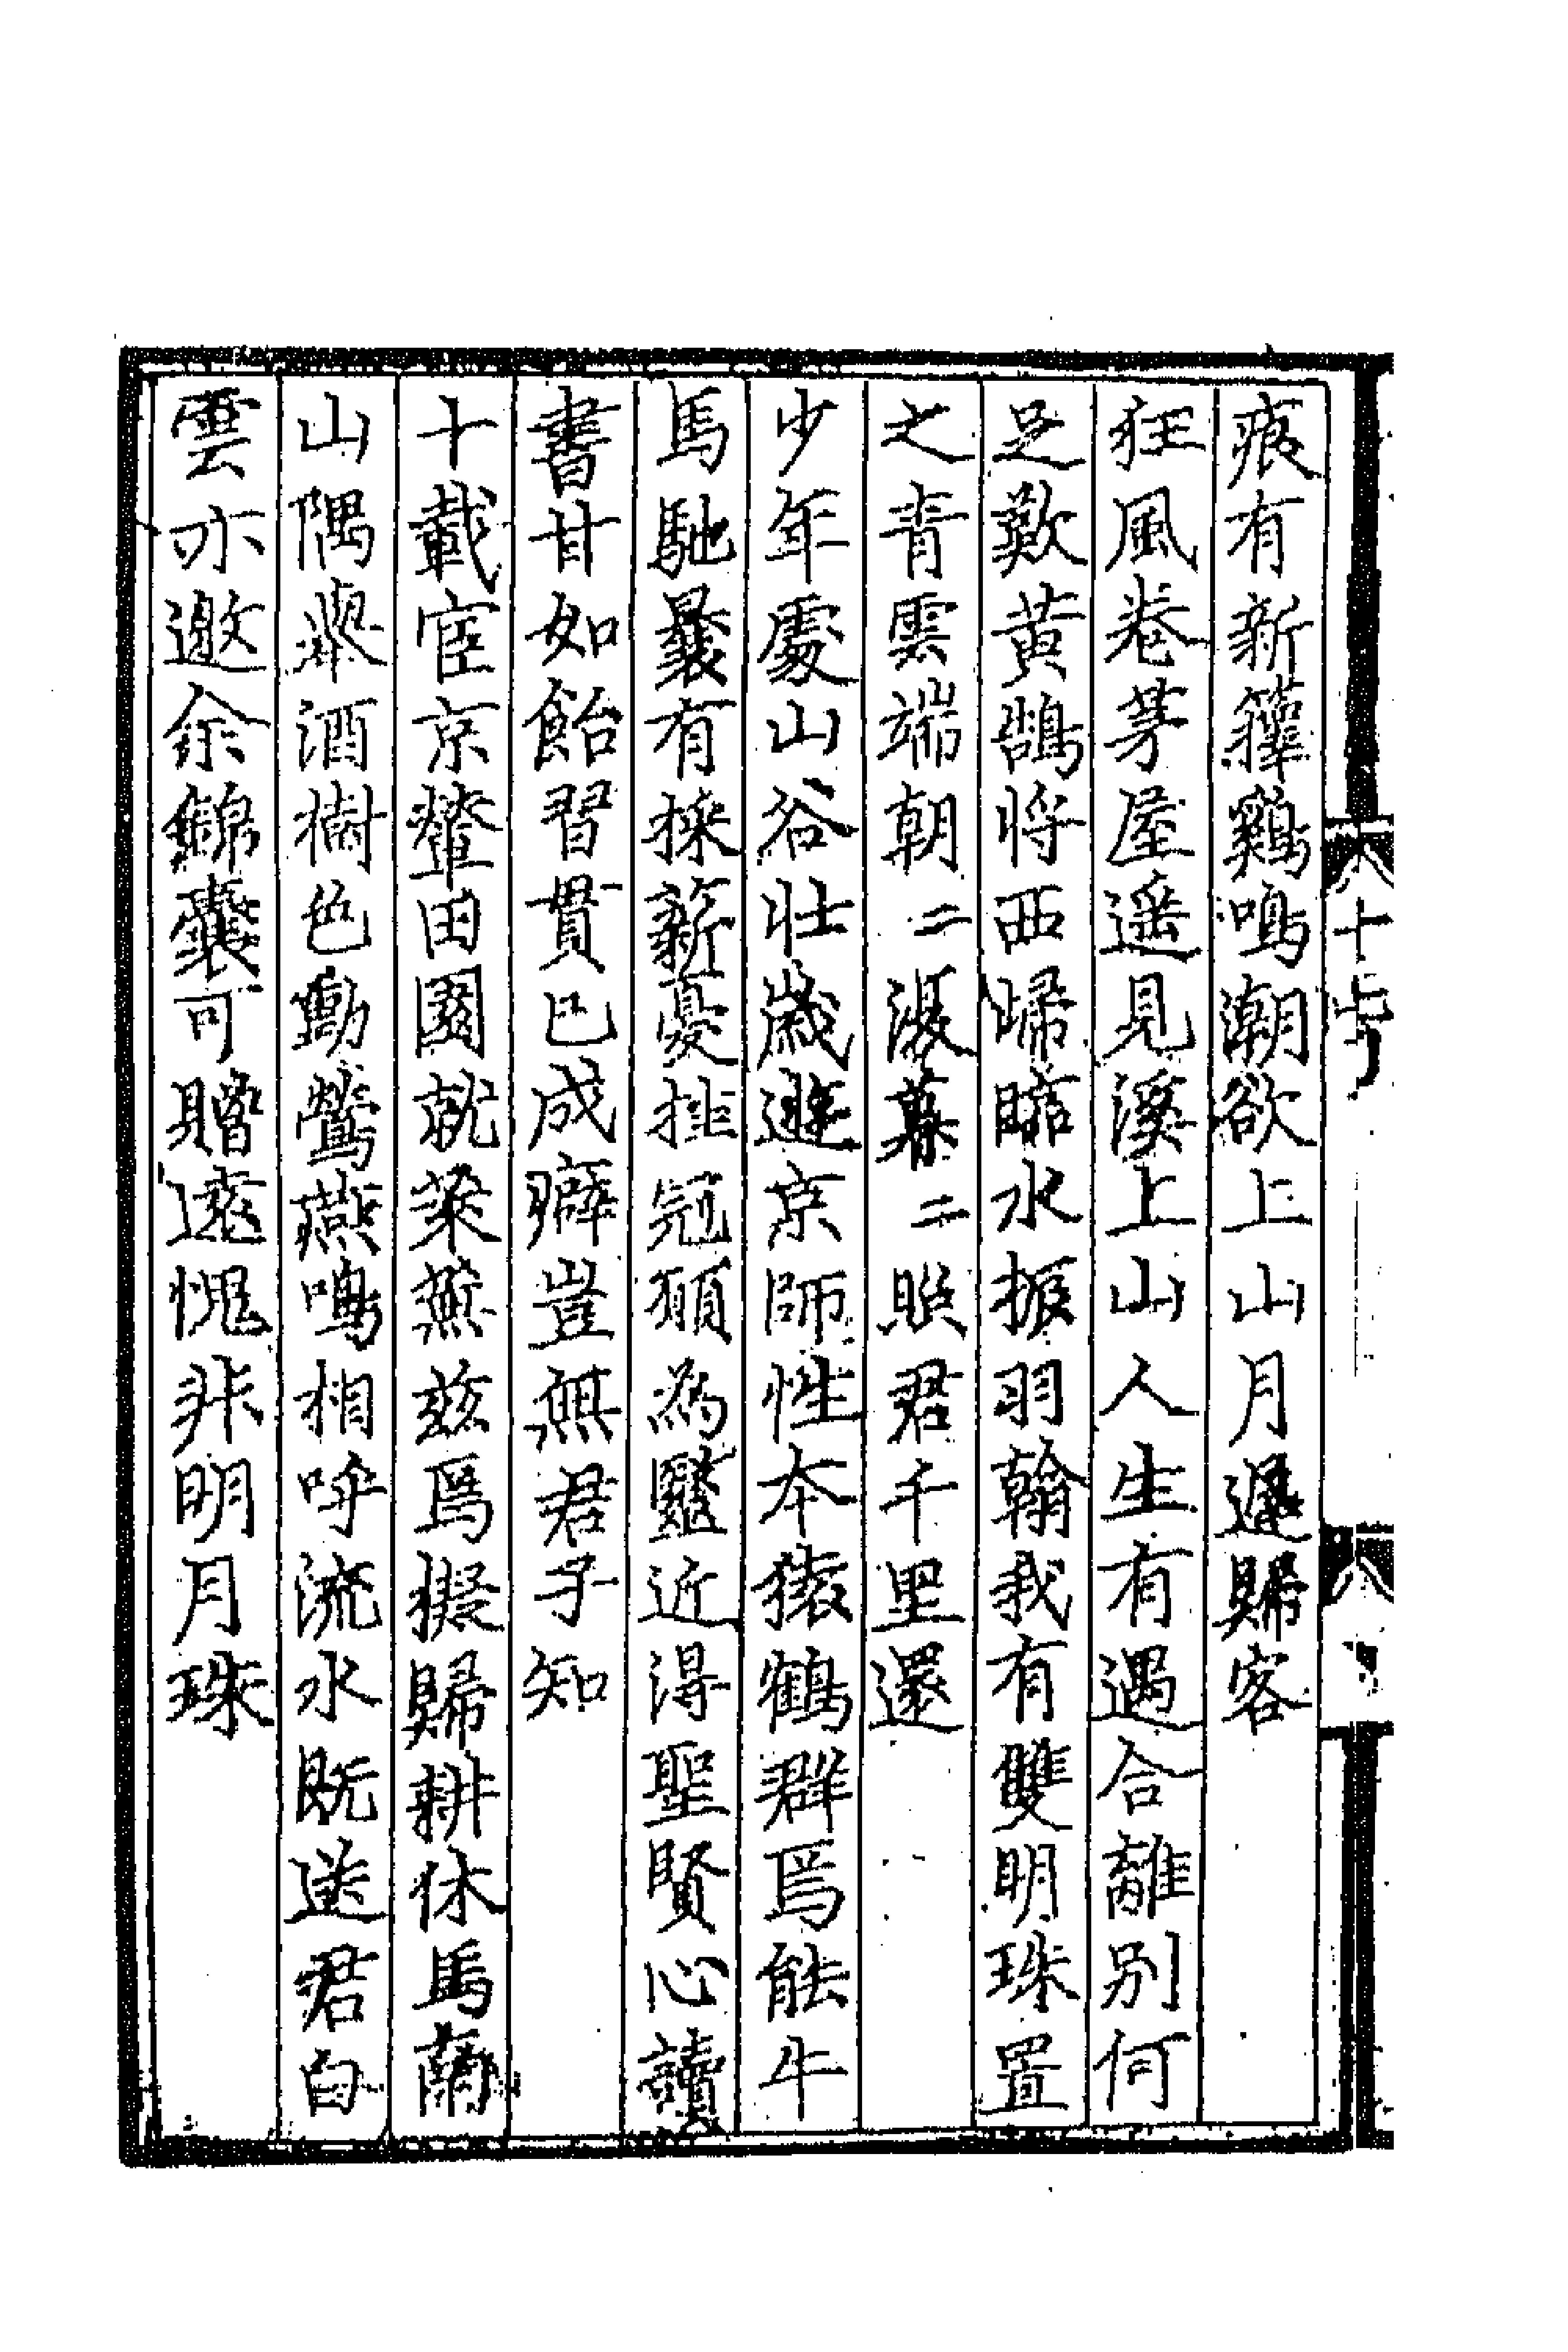 痕有新籜鷄鳴潮欲上山月遲歸客
狂風卷茅屋遥見溪上山人生有遇合離别何
足歎黄鵠将西歸臨水振羽翰我有雙明珠置
之青雲端朝〻漫暮〻照君千里還
少年處山谷壮歲遊京師性本猿鶴群焉能牛
馬馳曩有採薪憂挂冠願為毉近得聖賢心讀
書甘如飴習貫已成癖豈無君子知
十載宦京輦田園就榛蕪兹焉擬歸耕休馬蘭
山隅舉酒樹色動鶯燕鳴相呼流水既送君白
雲亦邀余錦囊可贈遠愧非明月珠